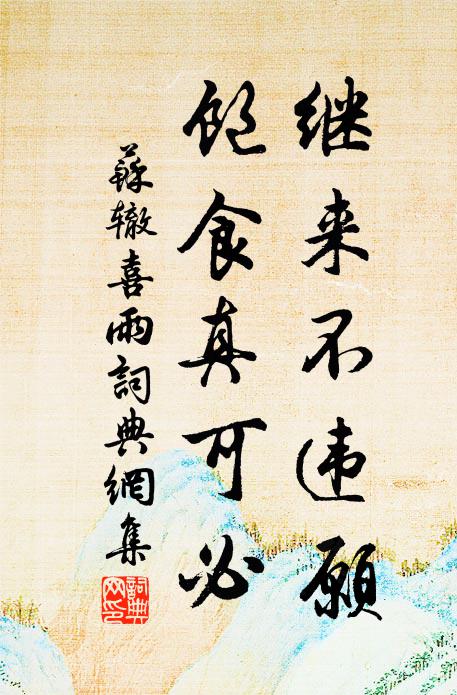 继来不违愿
饱食真可必
蘇辙喜雨詞典網集
詞典